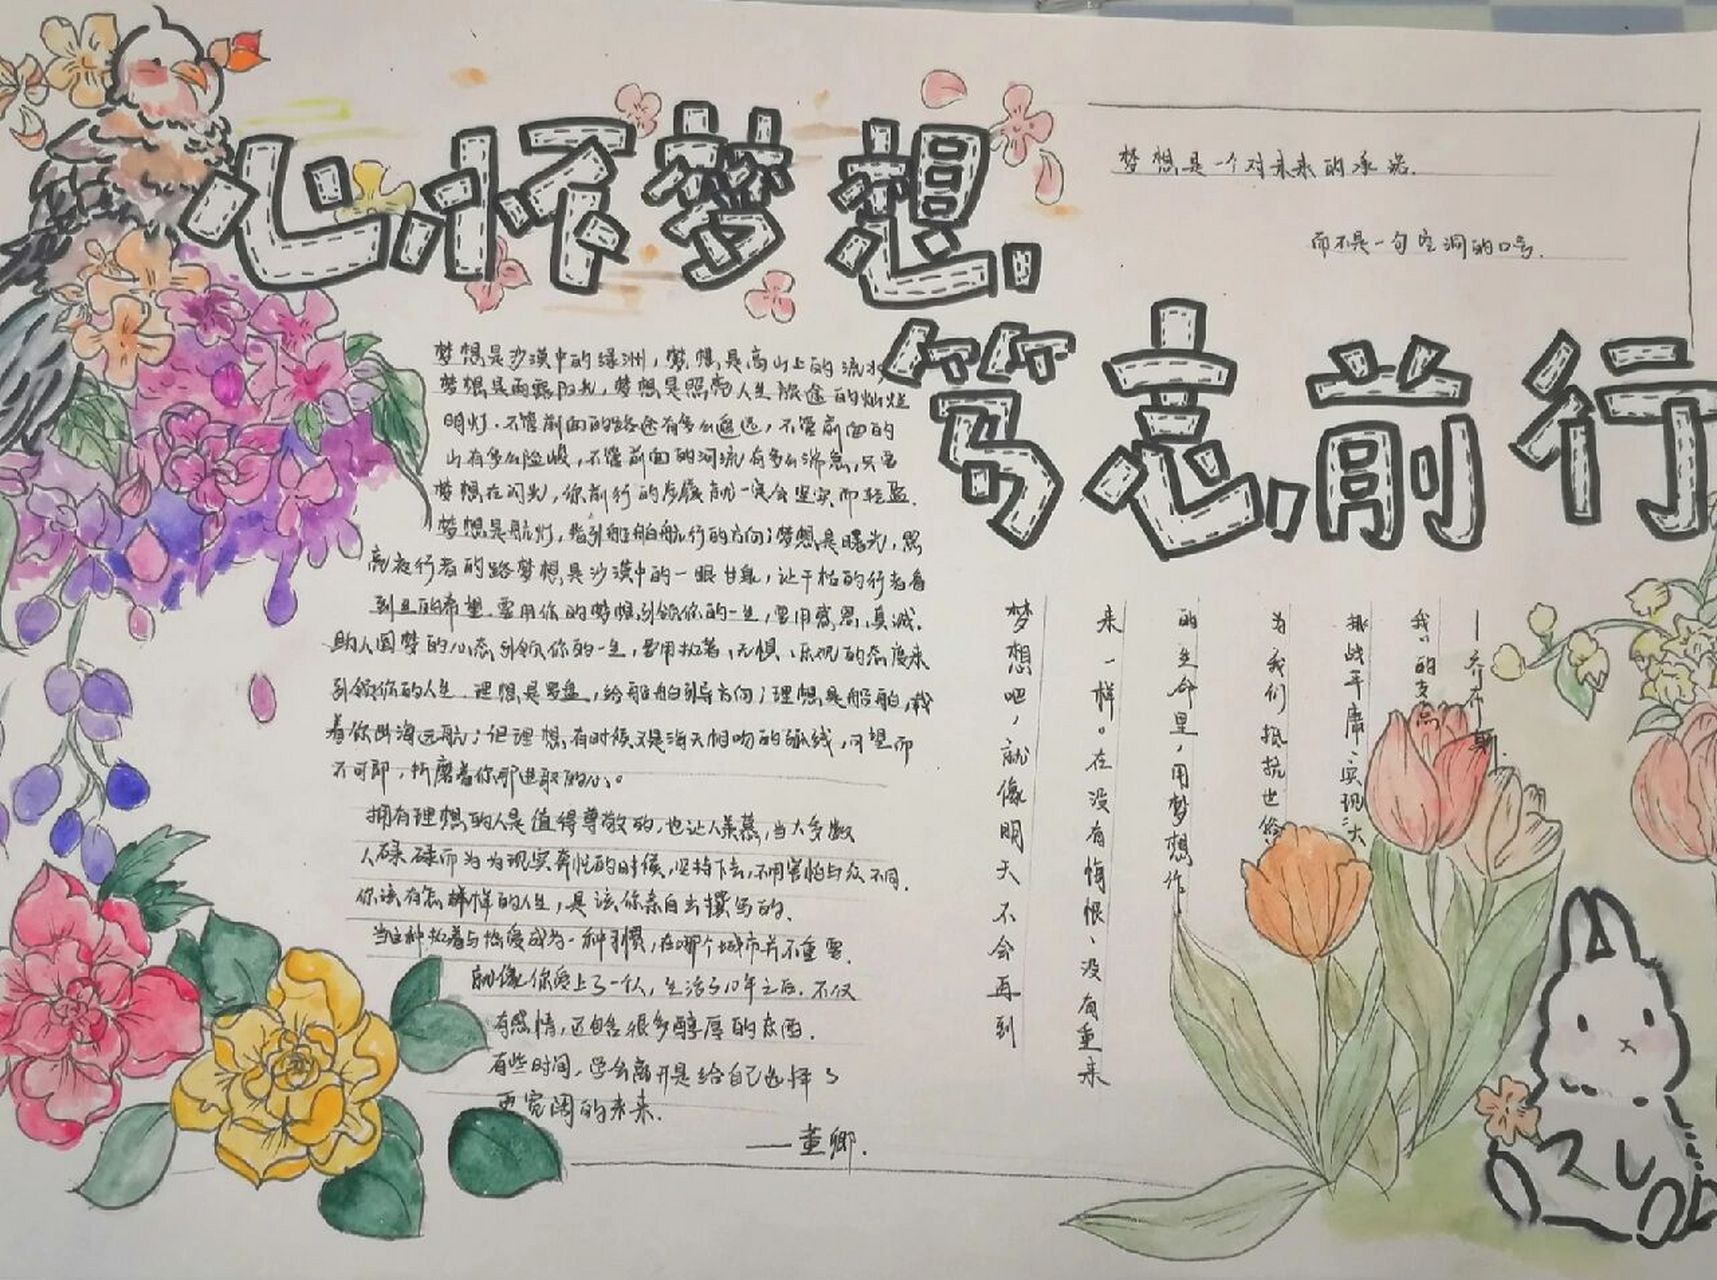 心怀梦想
笃志前行
梦想是一个对未来的承诺.
而不是一句空洞的口号.
梦想是沙漠中的绿洲，梦想是高山上的流水
梦想是雨露阳光，梦想是照亮人生旅途的灿烂
明灯.不管前面的路途有多么遥远，不管前面的
山有多么险峻，不管前面的河流有多么湍急，只要
梦想在闪光，你前行的步履就一定会坚实而轻盈.
梦想是航灯，指引船舶航行的方向；梦想是曙光，照
亮夜行者的路梦想是沙漠中的一眼甘泉，让干枯的行者看
到生的希望.要用你的梦想引领你的一生，要用感恩、真诚、
助人圆梦的心态引领你的一生，要用执著、无惧、乐观的态度来
引领你的人生.理想是罗盘，给船舶引导方向；理想是船舶，载
着你出海远航；但理想有时候又是海天相吻的弧线，可望而
不可即，折磨着你那进取的心。
拥有理想的人是值得尊敬的，也让人羡慕，当大多数
人碌碌而为为现实奔忙的时候，坚持下去，不用害怕与众不同.
你该有怎样的人生，是该你亲自去撰写的.
当这种执着与热爱成为一种习惯，在哪个城市并不重要.
就像你爱上了一个人，生活了10年之后.不仅
有感情，还包含很多醇厚的东西.
有些时间，学会离开是给自己选择了
更宽阔的未来.
——董卿.
梦想吧，就像明天不会再到
来一样。在没有悔恨、没有重来
的生命里，用梦想作
为我们抵抗也
挑战平庸、实现“大
我”的支点
——乔布斯